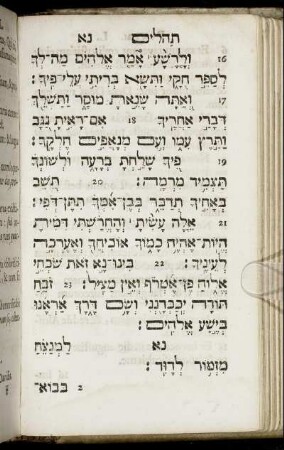 תהלים נא
16 וְלָרָשָׁע אָמַר אֱלֹהִים מַה־לְּךָ
לְסַפֵּר חֻקָּי וַתִּשָּׂא בְרִיתִי עֲלֵי־פִיךָ׃
17 וְאַתָּה שָׂנֵאתָ מוּסָר וַתַּשְׁלֵךְ
דְּבָרַי אַחֲרֶיךָ׃ 18 אִם־רָאִיתָ גַנָּב
וַתִּרֶץ עִמּוֹ וְעִם מְנָאֲפִים חֶלְקֶךָ׃
19 פִּיךָ שָׁלַחְתָּ בְרָעָה וּלְשׁוֹנְךָ
תַּצְמִיד מִרְמָה׃ 20 תֵּשֵׁב
בְּאָחִיךָ תְדַבֵּר בְּבֶן־אִמְּךָ תִּתֶּן־דֹּפִי׃
21 אֵלֶּה עָשִׂיתָ וְהֶחֱרַשְׁתִּי דִּמִּיתָ
הֱיוֹת־אֶהְיֶה כָמוֹךָ אוֹכִיחֲךָ וְאֶעֶרְכָה
לְעֵינֶיךָ׃ 22 בִּינוּ־נָא זֹאת שֹׁכְחֵי
אֱלוֹהַּ פֶּן־אֶטְרֹף וְאֵין מַצִּיל׃ 23 זֹבֵחַ
תּוֹדָה יְכַבְּדָנְנִי וְשָׂם דֶּרֶךְ אַרְאֶנּוּ
בְּיֵשַׁע אֱלֹהִים׃
נא לַמְנַצֵּחַ
מִזְמוֹר לְדָוִד׃
2 בבוא־